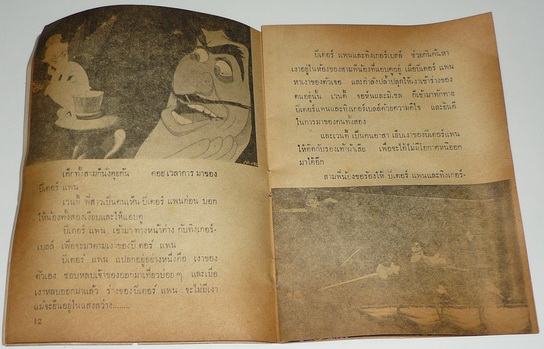 เด็กทั้งสามก็นั่งคุยกัน คอยเวลาการมาของ
ปีเตอร์ แพน
เวนดี้ ที่สาวเป็นคนเห็นปีเตอร์ แพนก่อน บอก
ให้น้องทั้งสองเงียบและให้แอบดู
ปีเตอร์ แพน เข้ามาทางหน้าต่าง กับทิงเกอร์-
เบลล์ เพื่อจะมาตามเงาของปีเตอร์ แพน
ปีเตอร์ แพน แปลกอยู่อย่างหนึ่งคือ เงาของ
ตัวเอง ชอบหลบเจ้าของออกมาเที่ยวบ่อยๆ และเมื่อ
เงาหลบออกมาแล้ว ร่างของปีเตอร์ แพน จะไม่มีเงา
แม้จะยืนอยู่ในแสงสว่าง.......
12
ปีเตอร์ แพนและทิงเกอร์เบลล์ ช่วยกันค้นหา
เงาอยู่ในห้องของสามพี่น้องที่แอบดูอยู่ เมื่อปีเตอร์ แพน
หาเงาของตัวเจอ และกำลังปล้ำปลุกให้เงาเข้าร่างของ
ตนอยู่นั้น เวนดี้ จอห์นและมิเชล ก็เข้ามาทักทาย
ปีเตอร์แพนและทิงเกอร์เบลล์ด้วยความดีใจ และยินดี
ในการมาของคนทั้งสอง
และเวนดี้ เป็นคนอาสา เย็บเงาของปีเตอร์แพน
ให้ติดกับรองเท้า เสีย เพื่อจะได้ไม่มีโอกาสหนีออก
มาได้อีก
สามพี่น้องขอร้องให้ ปีเตอร์ แพนและทิงเกอร์-